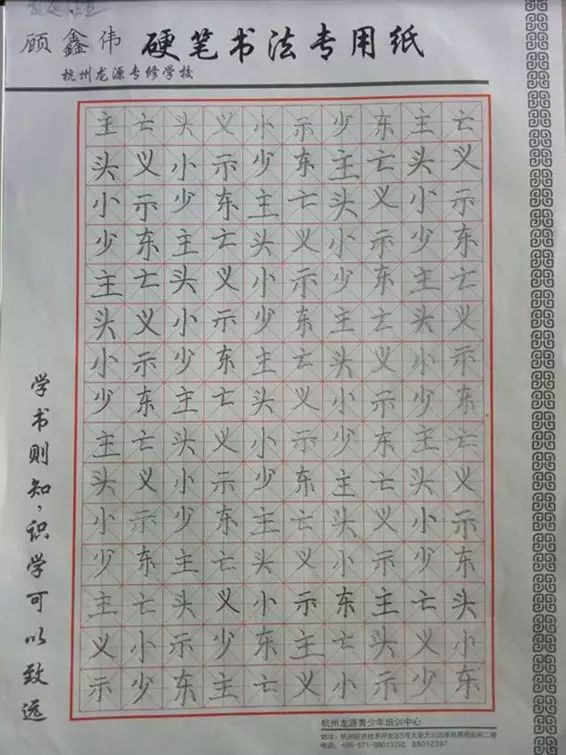 顾鑫伟 硬笔书法专用纸
杭州龙源专修学校
主亡头义小示少东主亡
头义小示少东主亡头义
小示少东主亡头义小示
少东主亡头义小示少东
主亡头义小示少东主亡
头义小示少东主亡头义
小示少东主亡头义小示
少东主亡头义小示少东
主亡头义小示少东主亡
头义小示少东主亡头义
小示少东主亡头义小示
少东主亡头义小示少东
主亡头义小示东主亡头
义小示少东主亡头义小
示少东主亡义小示少东
学书则知，识学可以致远
杭州龙源青少年培训中心
电话：+86-571-88013295 88012397